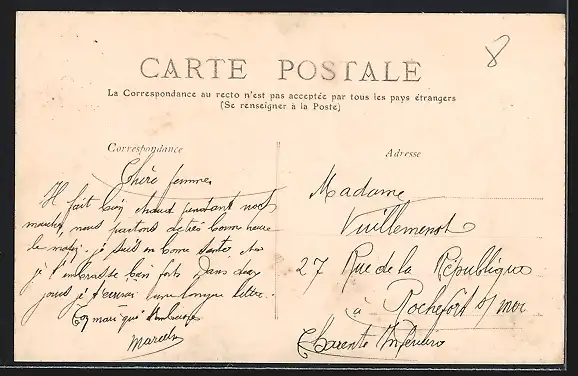 8
CARTE POSTALE
La Correspondance au recto n'est pas acceptée par tous les pays étrangers
(Se renseigner à la Poste)
Correspondance
Chère femme
Il fait bien chaud pendant nos
marches, nous partons de très bonne heure
le matin, je suis en bonne santée,
je t'embrasse bien fort. Dans
jours je t'écrirai une longue lettre.
Ton mari qui t'embrasse
Marcelin
Adresse
Madame
Vuillemenot
27 Rue de la République
à Rochefort s/ mer
Charente Inférieure